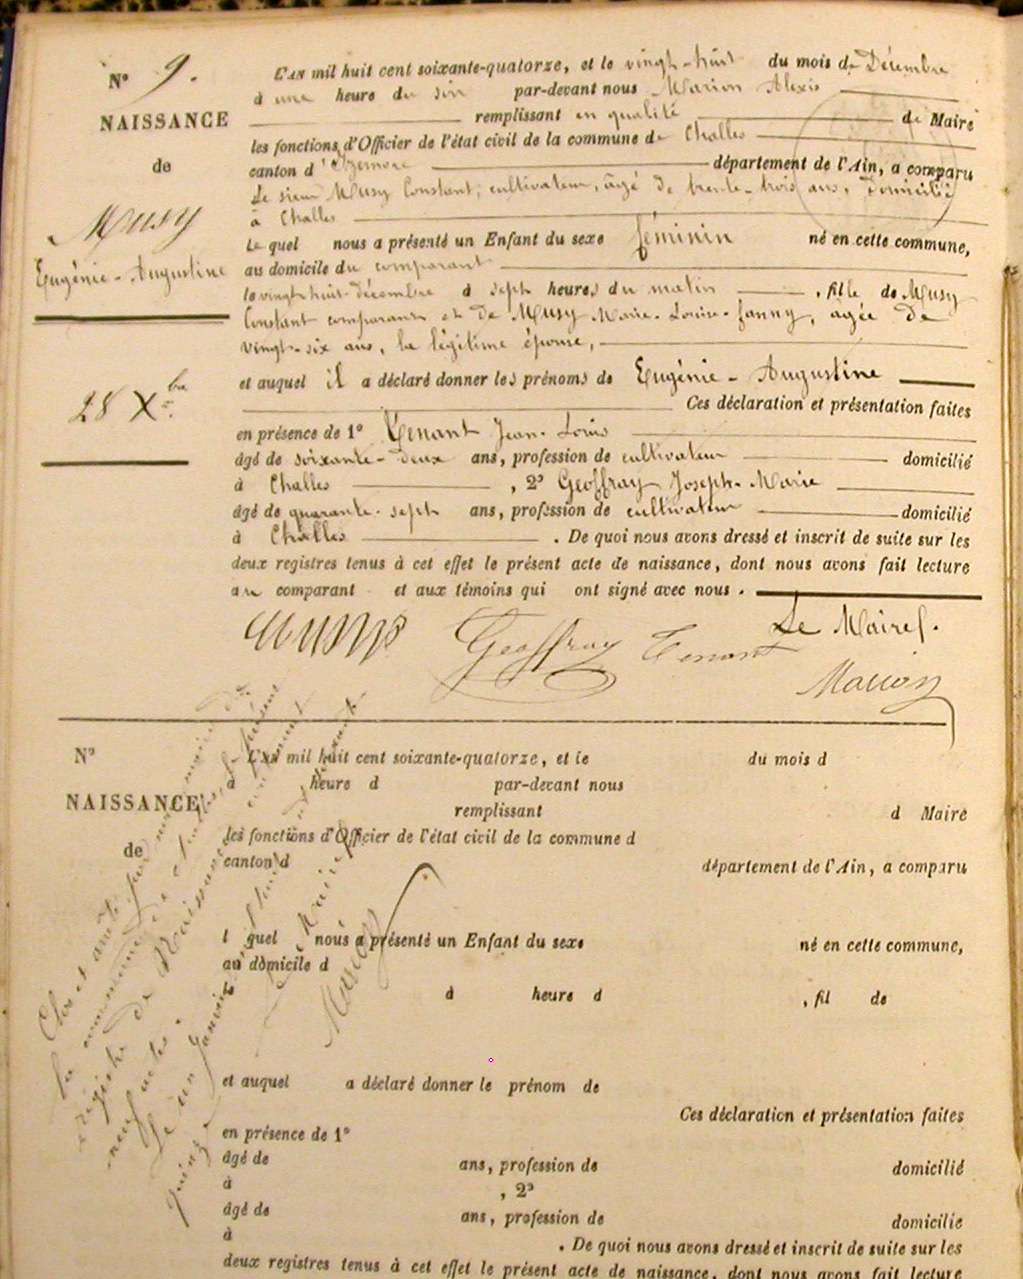 N° 9.
NAISSANCE
de
Musy
Eugénie-Augustine
28 Xbre
L'AN mil huit cent soixante-quatorze, et le vingt-huit du mois de Décembre
à une heure du soir par-devant nous Marion Alexis
remplissant en qualité de Maire
les fonctions d'Officier de l'état civil de la commune de Challes
canton d'Izernore département de l'Ain, a comparu
Le sieur Musy Constant, cultivateur, âgé de trente-trois ans, domicilié
à Challes
Le quel nous a présenté un Enfant du sexe féminin né en cette commune,
au domicile du comparant
le vingt-huit décembre à sept heures du matin, fille de Musy
Constant comparant et de Musy Marie-Louise-Fanny, âgée de
vingt-six ans, sa légitime épouse,
et auquel il a déclaré donner les prénoms de Eugénie-Augustine
Ces déclaration et présentation faites
en présence de 1° Tenant Jean-Louis
âgé de soixante-deux ans, profession de cultivateur domicilié
à Challes, 2° Geoffray Joseph-Marie
âgé de quarante-sept ans, profession de cultivateur domicilié
à Challes. De quoi nous avons dressé et inscrit de suite sur les
deux registres tenus à cet effet le présent acte de naissance, dont nous avons fait lecture
au comparant et aux témoins qui ont signé avec nous.
Musy Geoffray Tenant Le Maire
Marion
N°
NAISSANCE
de
L'AN mil huit cent soixante-quatorze, et le du mois d
à heure d par-devant nous
remplissant d Maire
les fonctions d'Officier de l'état civil de la commune d
canton d département de l'Ain, a comparu
l quel nous a présenté un Enfant du sexe né en cette commune,
au domicile d
le à heure d , fil de
et auquel a déclaré donner le prénom de
Ces déclaration et présentation faites
en présence de 1°
âgé de ans, profession de domicilié
à , 2°
âgé de ans, profession de domicilié
à . De quoi nous avons dressé et inscrit de suite sur les
deux registres tenus à cet effet le présent acte de naissance, dont nous avons fait lecture
Clos et arrêté par nous maire de
la commune de le présent
registre de Naissance contenant
neuf actes
le un Janvier mil huit cent soixante
quinze
Le Maire
Marion